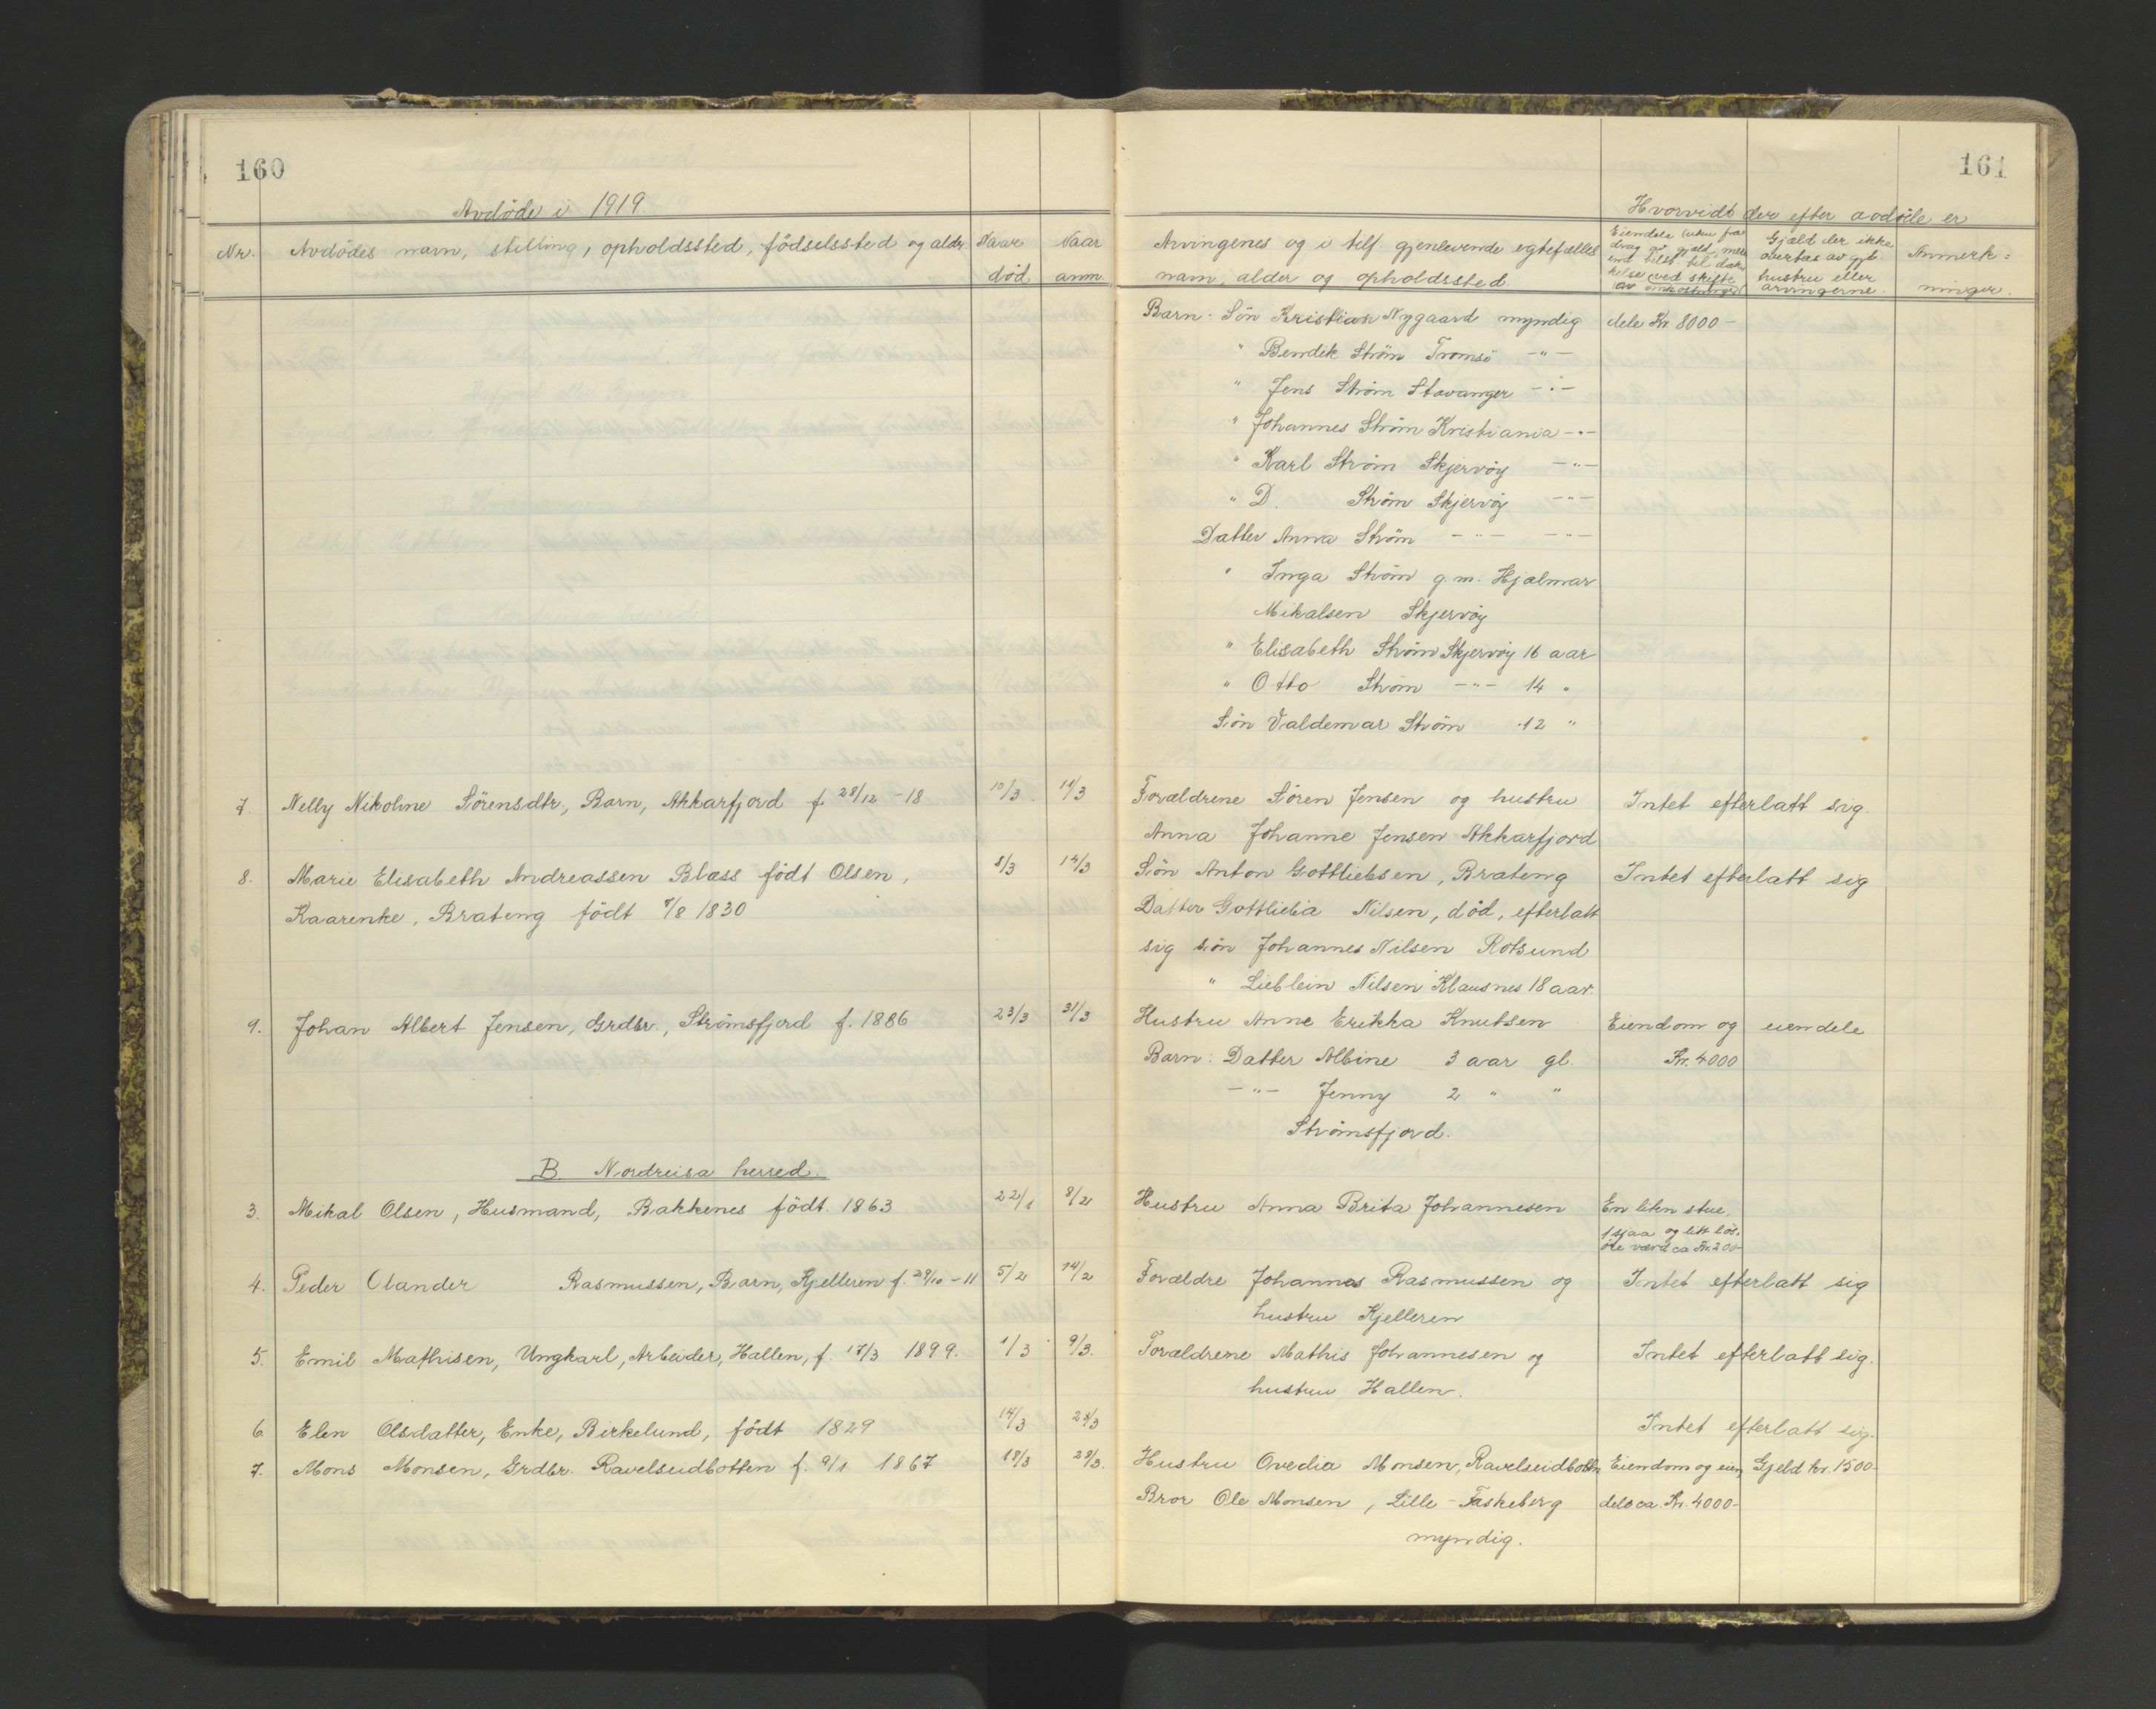 160
Avdöde i 1919.
Nr. Avdödes navn, stilling, opholdssted, födselssted og alder Naar död. Naar anm.
7. Nelly Nikoline Sörensdtr., Barn, Akkarfjord f. 28/12 - 18 10/3 11/3
8. Marie Elisabeth Andreassen Blæss födt Olsen, 8/3 14/3
Kaarenke, Brateng födt 7/8 1830
9. Johan Albert Jensen, Grdbr., Strömsfjord f. 1886 23/3 31/3
B Nordreisa herred.
3. Mikal Olsen, Husmand, Bakkenes födt. 1863 22/1 8/2
4. Peder Olander Rasmussen, Barn, Kjelleren f. 29/10 - 11 5/2 14/2
5. Emil Mathisen, Ungkarl, Arbeider, Hallen, f. 17/3 1899. 1/3 9/3.
6 Elen Olsdatter, Enke, Birkelund, födt 1829 14/3
7. Mons Monsen, Grdbr. Ravelseidbotten f. 9/1 1867 18/3 29/3.
161
Hvorvidt der efter avdöde er
Arvingenes og i tilf. gjenlevende egtefælles
navn, alder og opholdssted.
Eiendele uten fra
drag av gjæld, mere
end tilst. til dæk
kelse ved skifte
av omkostninger
Gjæld der ikke
overtas av gjt.
hustru eller
arvingerne.
Anmerk=
ninger.
Barn: Sön Kristian Nygaard myndig dele Kr. 8000 -
" Bendik Ström Tromsö -"-
" Jens Ström Stavanger -"-
" Johannes Ström Kristiania -"-
" Karl Ström Skjervöy -"-
" D. Ström Skjervöy -"-
Datter Anna Ström -"- -"-
" Inga Ström g.m. Hjalmar
Mikalsen Skjervöy
" Elisabeth Ström Skjervöy 16 aar
" Otto Ström -"- 14 "
Sön Valdemar Ström 12 "
Forældrene Sören Jensen og hustru Intet efterlatt sig.
Anna Johanne Jensen Akkarfjord
Sön Anton Gottliebsen, Brateng Intet efterlatt sig
Datter Gottliebia Nilsen, död, efterlatt
sig sön Johannes Nilsen Rotsund
" Lieblein Nilsen Klausnes 18 aar.
Hustru Anne Erikka Knutsen Eiendom og eiendele
Barn: Datter Albine 3 aar gl. Kr. 4000
-"- Jenny 2 " "
Strömsfjord.
Hustru Anna Brita Johannesen En liten stue,
1 sjaa og litt lös-
öre værd ca Kr. 200-
Forældre Johannes Rasmussen og Intet efterlatt sig
hustru Kjelleren
Forældrene Mathis Johannesen og Intet efterlatt sig.
hustru Hallen.
Intet efterlatt sig.
Hustru Ovedia Monsen, Ravelseidbotn Eiendom og eien Gjeld kr. 1500-
Bror Ole Monsen, Lille-Taskeberg dele ca. Kr. 4000-
myndig.